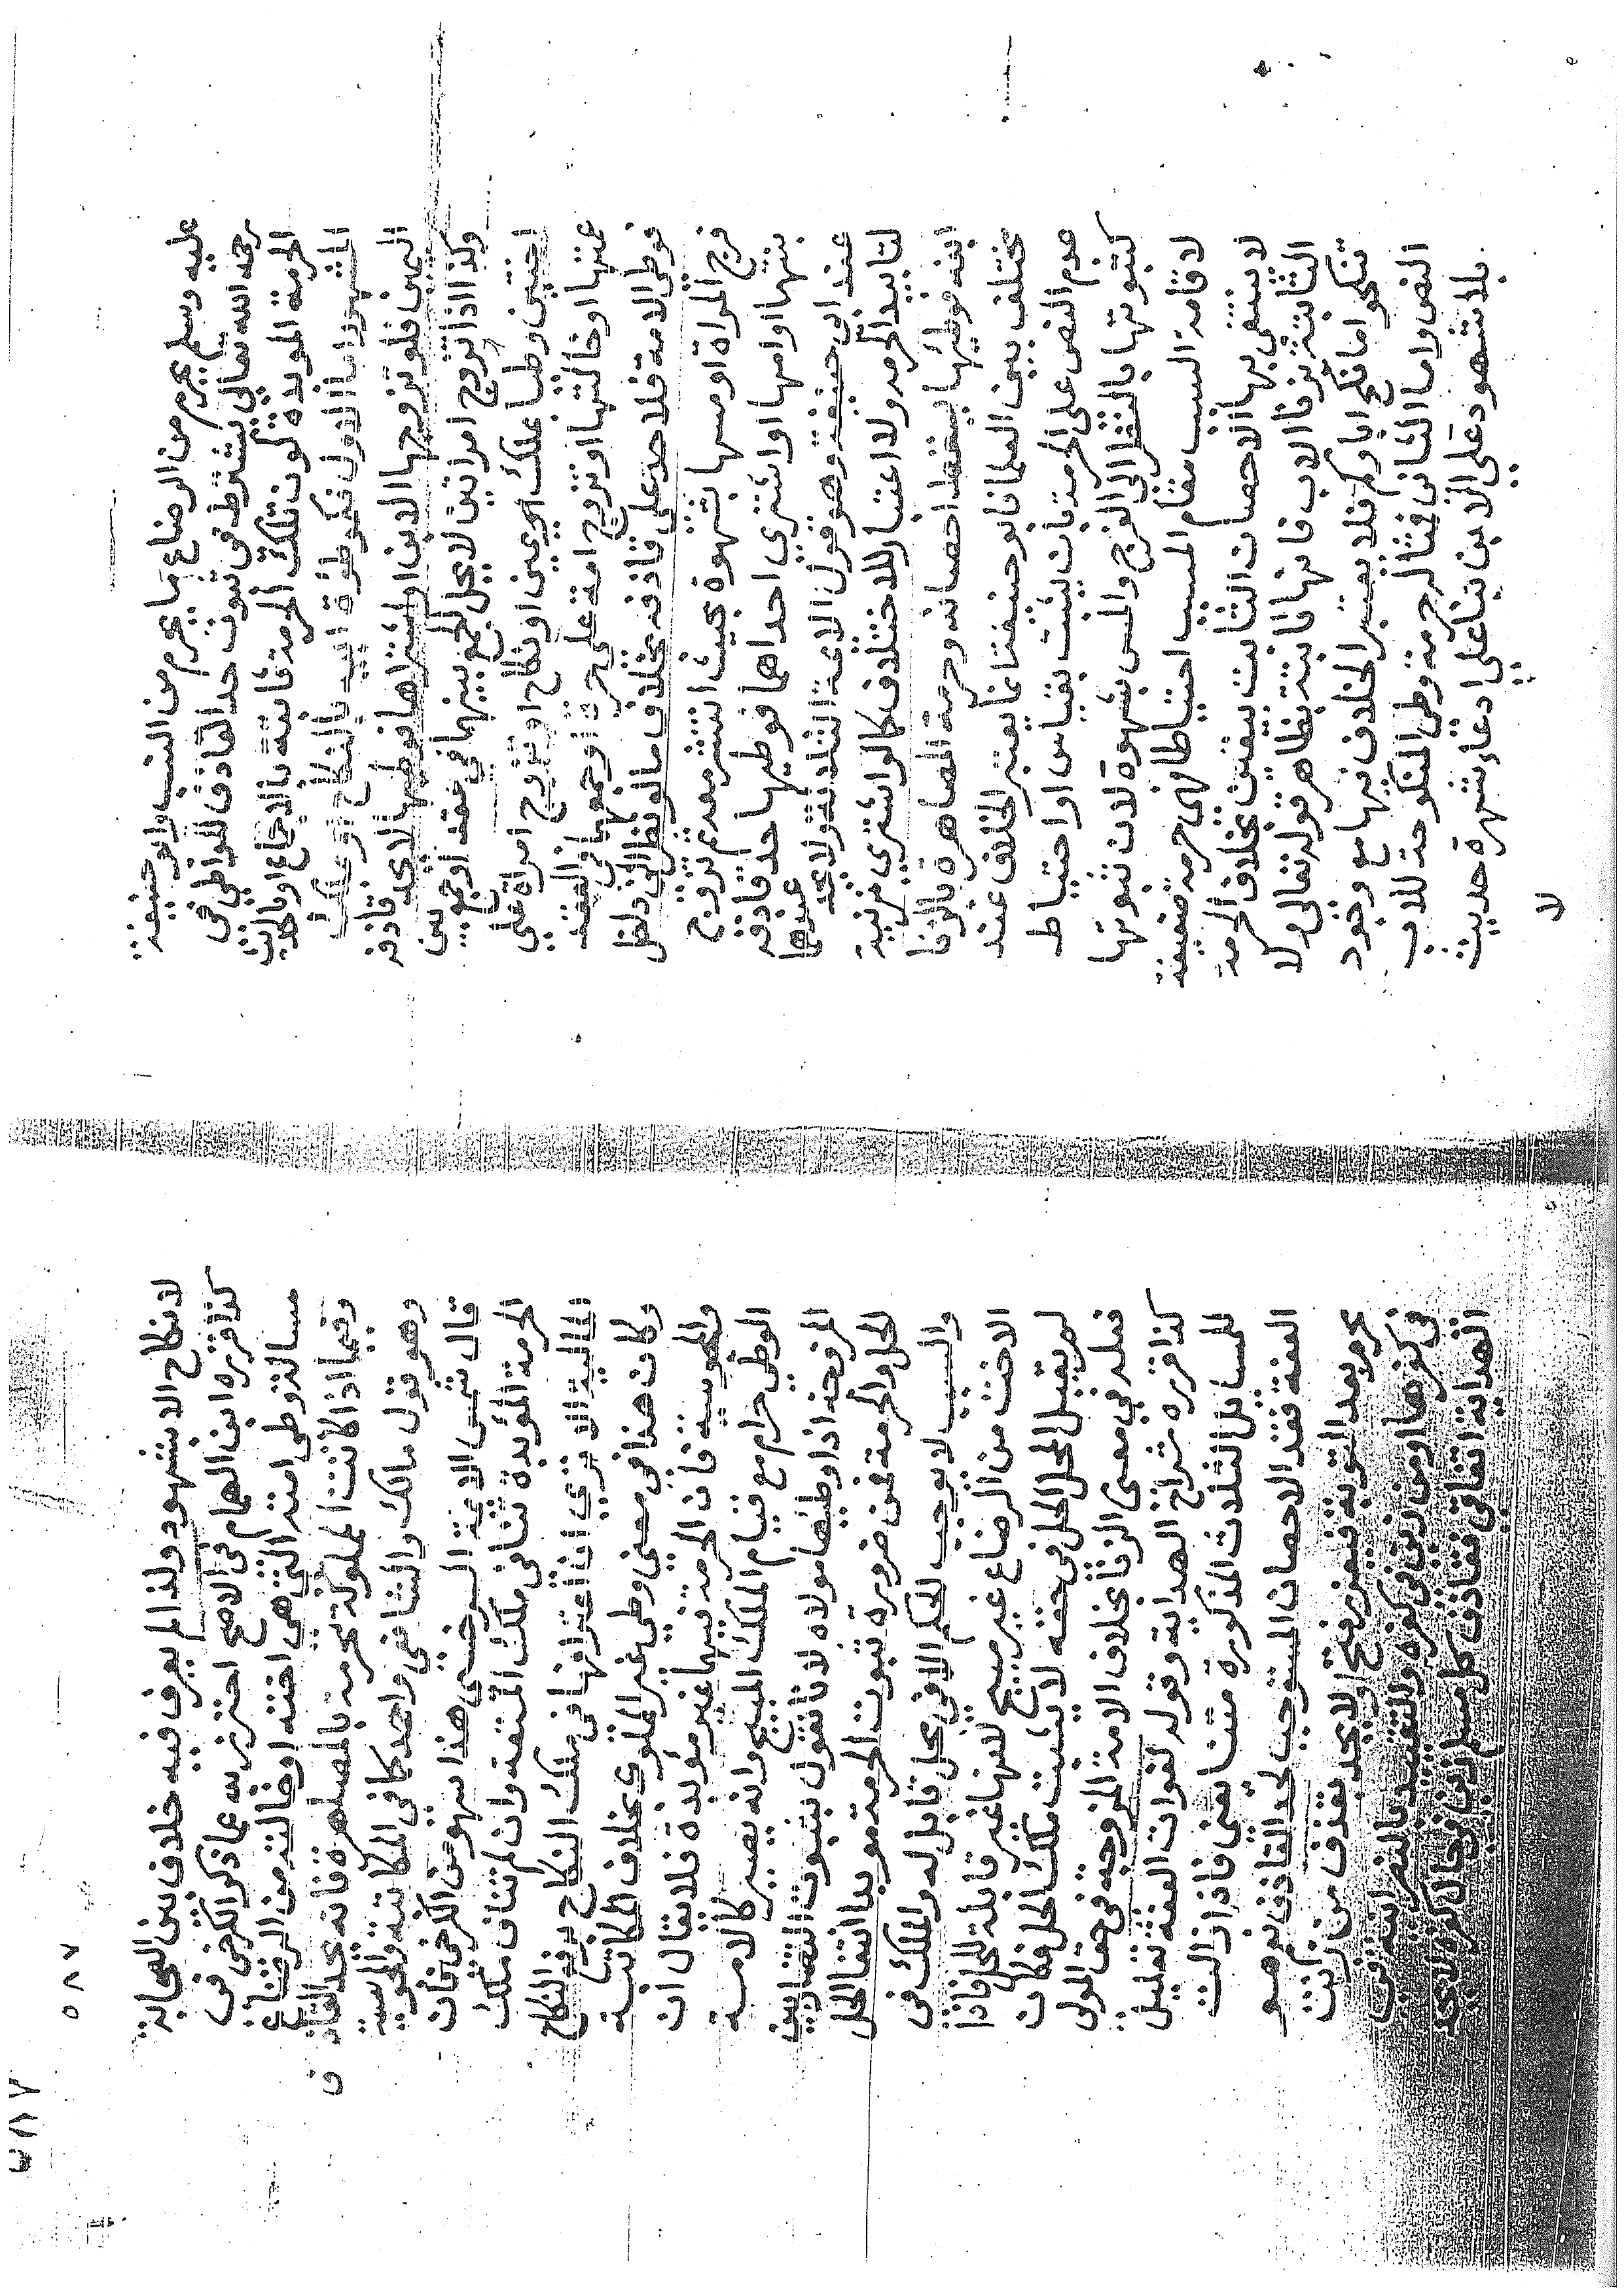 عليه وسلم يحرم من الرضاع ما يحرم من النسب وابو حنيفة
رحمه الله تعالى يشترط في ثبوت حد القاذف للواطي في
الحرمة المؤبدة كون تلك الحرمة ثابتة بالاجماع او بالحديث
المشهور اما الاول فكموطؤة ابيه بالنكاح او بملك
اليمين فلو تزوجها الابن او اشتراها فوطيها لا يحد قاذفه
وكذا اذا تزوج امراتين لا يحل الجمع بينهما في عقد او جمع بين
اختين وطئا بملك اليمين او نكاح او تزوج امراة على
عمتها او خالتها او تزوج امة على حرة او جمعهما في العقد
فوطي الامة فلا حد على قاذفه بخلاف ما لو نظر الى داخل
فرج المراة او مسها بشهوة بحيث انتشر معه ثم تزوج
بنتها او امها او اشترى احداهما فوطيها حد قاذفه
عند ابي حنيفة وهو قول الائمة الثلاثة ولا يحد عندهما
لتابيد الحرمة ولا اعتبار للاختلاف كما لو اشترى مزنية
ابنه فوطيها يسقط احصانه وحرمة المصاهرة بالزنا
مختلف بين العلما فابو حنيفة انما يعتبر الخلاف عند
عدم النص على الحرمة بان يثبت بقياس او احتياط
كثبوتها بالنظر الى الفرج والمس بشهوة لان ثبوتها
لاقامة السبب مقام المسبب احتياطا فهي حرمة ضعيفة
لا ينتفي بها الاحصان الثابت بيقين بخلاف الحرمة
الثابتة بزنا الاب فانها ثابتة بظاهر قوله تعالى ولا
تنكحوا ما نكح اباؤكم فلا يعتبر الخلاف فيها مع وجود
النص واما الثاني فمثاله حرمة وطي المنكوحة للاب
بلا شهود على الابن بناء على ادعاء شهرة حديث
لا
٥٨٧
لا نكاح الا بشهود ولذا لم يعرف فيه خلاف بين الصحابة
كذا قرره ابن الهمام في الاصح احترز به عما ذكر الكرخي في
مسالة وطي امته التي هي اخته او خالته من الرضاع
وفيما اذا كانت المملوكة محرمة بالمصاهرة فانه يحد القاذف
وهو قول مالك والشافعي واحمد كما في المكاتبة والمجوسية
قال شمس الائمة السرخسي هذا سهو من الكرخي فان
الحرمة المؤبدة تنافي ملك المتعة وان لم تناف ملك
المالية الا ترى ان اعتراضها في ملك النكاح يرفع النكاح
وكان هذا في معنى وطي غير المملوك بخلاف المكاتبة
والمجوسية فان الحرمة فيهما غير مؤبدة فلا يقال ان
الوطي حرام مع قيام الملك المبيح وانه يصير كالامة
المزوجة اذا وطيها مولاه لانا نقول بثبوت التضاد بين
الحل والحرمة فمن ضرورة ثبوت الحرمة مؤبدا انتفا الحل
والسبب لا يوجب الحكم الا في محل قابل له والملك في
الاخت من الرضاع غير مبيح لكنها غير قابلة للحل فاذا
لم يقبل المحل الحل في حقه لا يثبت ملك الحل فكان
فعله في معنى الزنا بخلاف الامة المزوجة في حق المولى
كذا قرره شراح الهداية وقوله لفوات العفة تعليل
للمسائل الثلاث المذكورة متنا يعني فاذا زالت
العفة فقد الاحصان المستوجب لحد القاذف ثم هو
محرم بعد التوبة فيعزر فتح ولا يحد بقذف من زنت
في كفرها او من زنى في كفره والتقييد بالنصرانية في
الهداية اتفاقي فقاذف كل مسلم زنى في حال كفره لا يحد